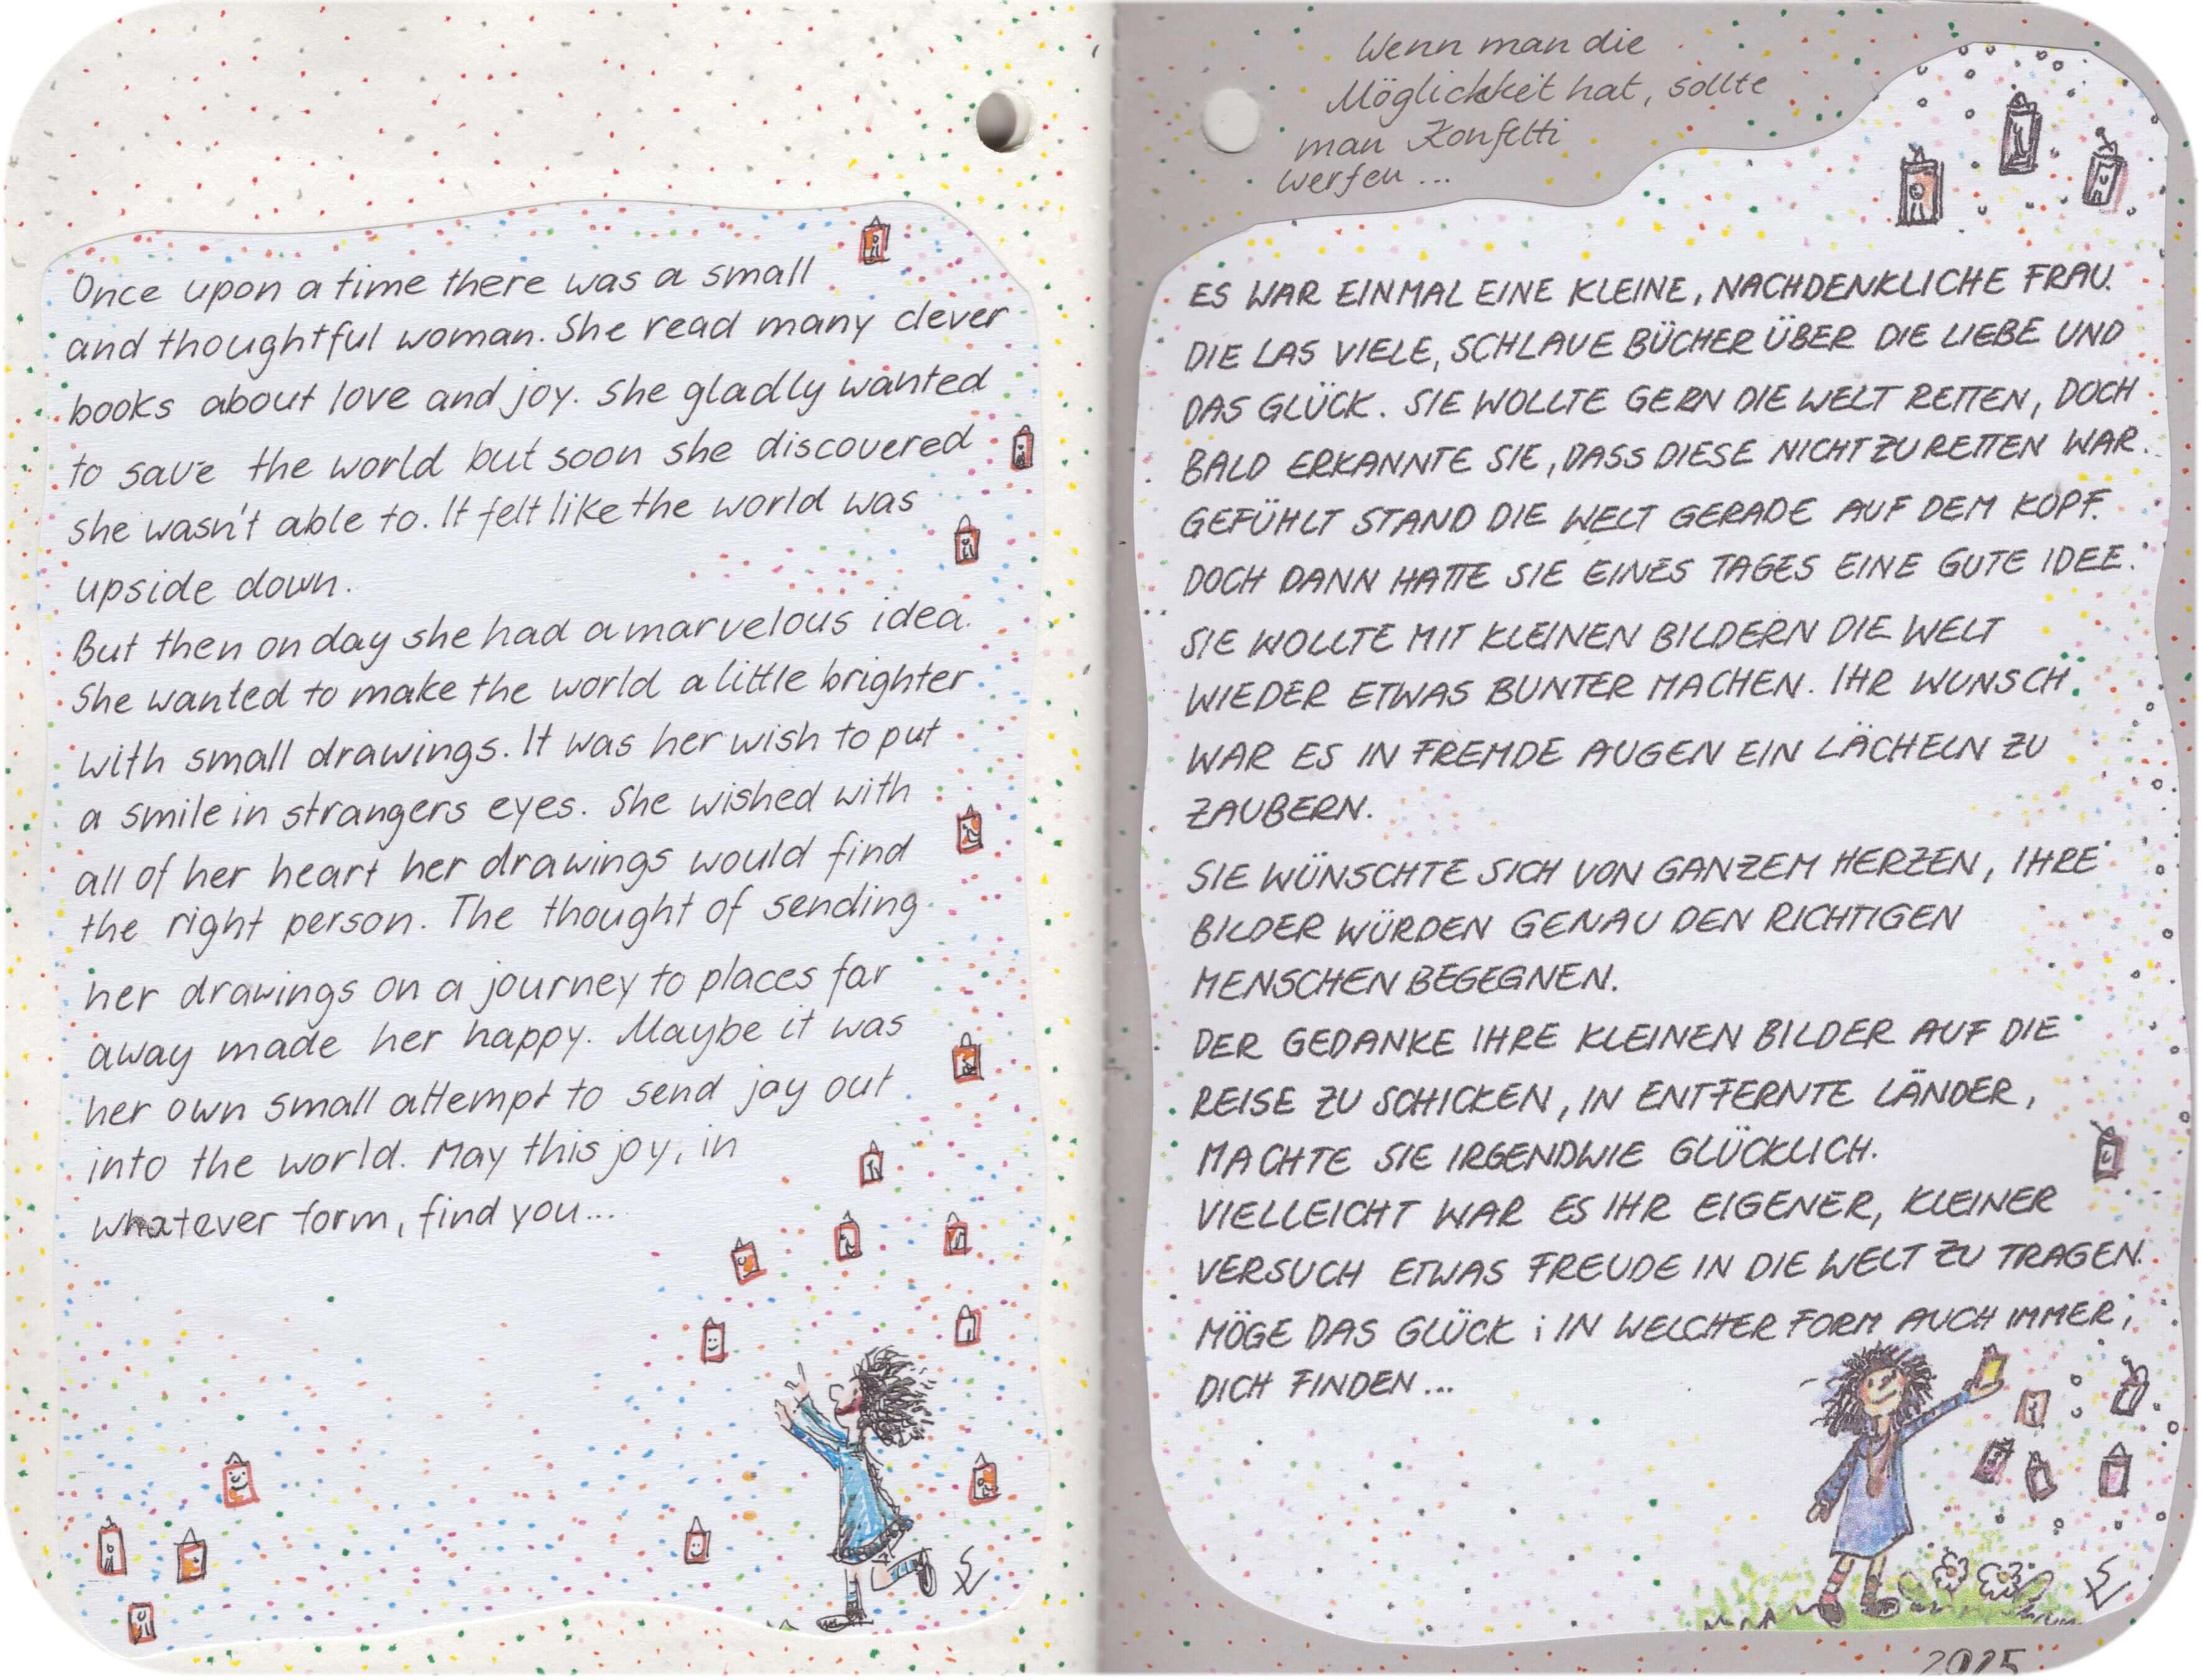 Once upon a time there was a small
and thoughtful woman. She read many clever
books about love and joy. She gladly wanted
to save the world but soon she discovered
she wasn't able to. It felt like the world was
upside down.
But then on day she had a marvelous idea.
She wanted to make the world a little brighter
with small drawings. It was her wish to put
a smile in strangers eyes. She wished with
all of her heart her drawings would find
the right person. The thought of sending
her drawings on a journey to places far
away made her happy. Maybe it was
her own small attempt to send joy out
into the world. May this joy, in
whatever form, find you...
Wenn man die
Möglichkeit hat, sollte
man Konfetti
werfen ...
ES WAR EINMAL EINE KLEINE, NACHDENKLICHE FRAU.
DIE LAS VIELE, SCHLAUE BÜCHER ÜBER DIE LIEBE UND
DAS GLÜCK. SIE WOLLTE GERN DIE WELT RETTEN, DOCH
BALD ERKANNTE SIE, DASS DIESE NICHT ZU RETTEN WAR.
GEFÜHLT STAND DIE WELT GERADE AUF DEM KOPF.
DOCH DANN HATTE SIE EINES TAGES EINE GUTE IDEE.
SIE WOLLTE MIT KLEINEN BILDERN DIE WELT
WIEDER ETWAS BUNTER MACHEN. IHR WUNSCH
WAR ES IN FREMDE AUGEN EIN LÄCHELN ZU
ZAUBERN.
SIE WÜNSCHTE SICH VON GANZEM HERZEN, IHRE
BILDER WÜRDEN GENAU DEN RICHTIGEN
MENSCHEN BEGEGNEN.
DER GEDANKE IHRE KLEINEN BILDER AUF DIE
REISE ZU SCHICKEN, IN ENTFERNTE LÄNDER,
MACHTE SIE IRGENDWIE GLÜCKLICH.
VIELLEICHT WAR ES IHR EIGENER, KLEINER
VERSUCH ETWAS FREUDE IN DIE WELT ZU TRAGEN.
MÖGE DAS GLÜCK ; IN WELCHER FORM AUCH IMMER ;
DICH FINDEN ...
2025